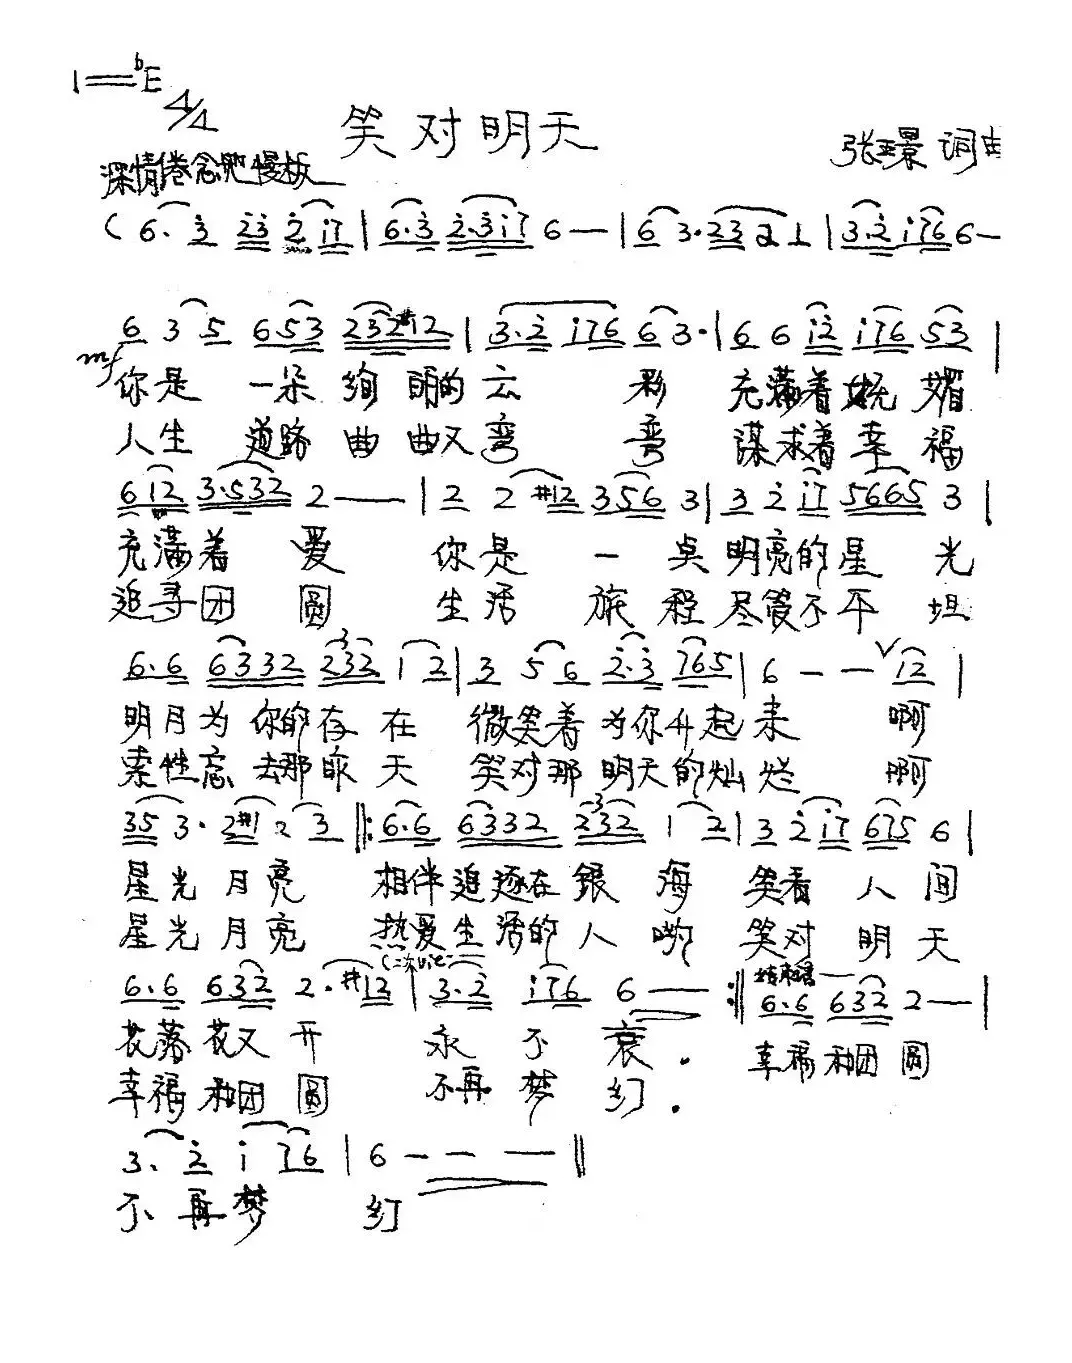 1=♭E
4/4
笑对明天
张景 词曲
深情倦念地 慢板
( 6. 3 23 2 i7 | 6.3 2.3i7 6 — | 6 3.23 2 1 | 3.2 i76 6 —
6 3 5 6.53 232#12 | 3.2 i76 6 3. | 6 6 i2 i76 53 |
mf
你是 一朵绚丽的云 彩 充满着妩媚
人生 道路曲曲又弯 弯 谋求着幸福
6 12 3.532 2 —— | 2 2 #12 356 3 | 3 2 i7 5665 3 |
充满着 爱 你是 一点明亮的星 光
追寻团 圆 生活 旅程尽管不平 坦
6.6 6332 232 1 2 | 3 5 6 2.3 765 | 6 — — V 12 |
明月为你的存在 微笑着为你升起来 啊
索性忘去那昨天 笑对那明天的灿烂 啊
35 3. 2#1 2 3 ‖: 6.6 6332 232 1 2 | 3 2 i7 675 6 |
星光月亮 相伴追逐在银海 笑看人间
星光月亮 热爱生活的人哟 笑对明天
6.6 632 2. #12 | 3.2 i76 6 — — :‖ 6.6 632 2 — |
花落花又开 永不衰. 幸福和团圆
幸福和团圆 不再梦幻.
3. 2 i 76 | 6 — — — ‖
不再梦 幻